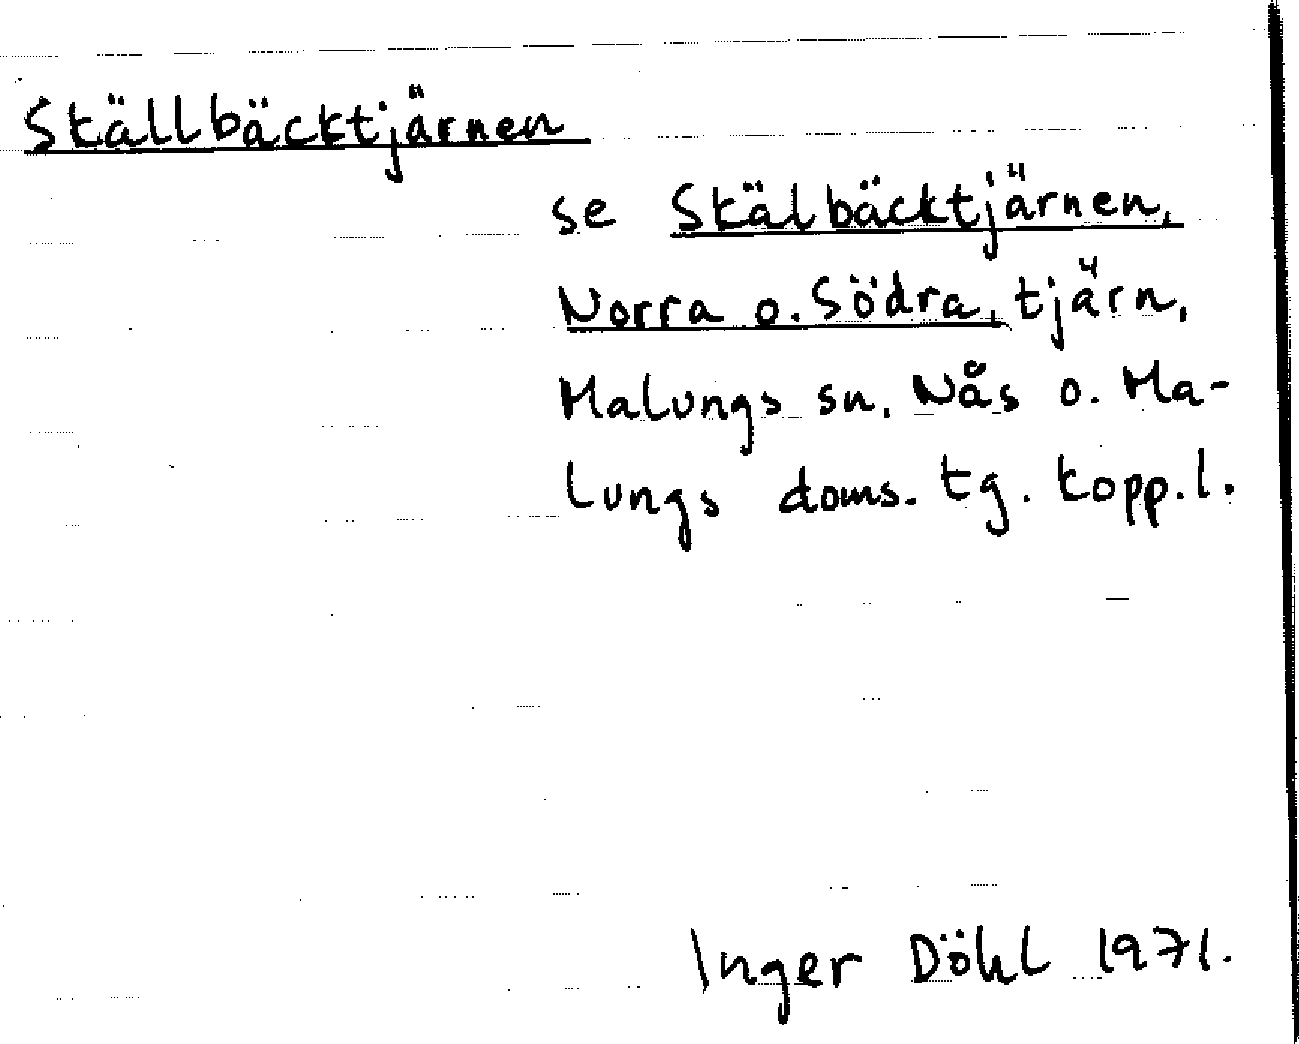 Ställbäcktjärnen
se Skälbäcktjärnen,
Norra o. Södra, tjärn,
Malungs sn. Nås o. Ma-
lungs doms. tg. kopp.l.
Inger Döhl 1971.